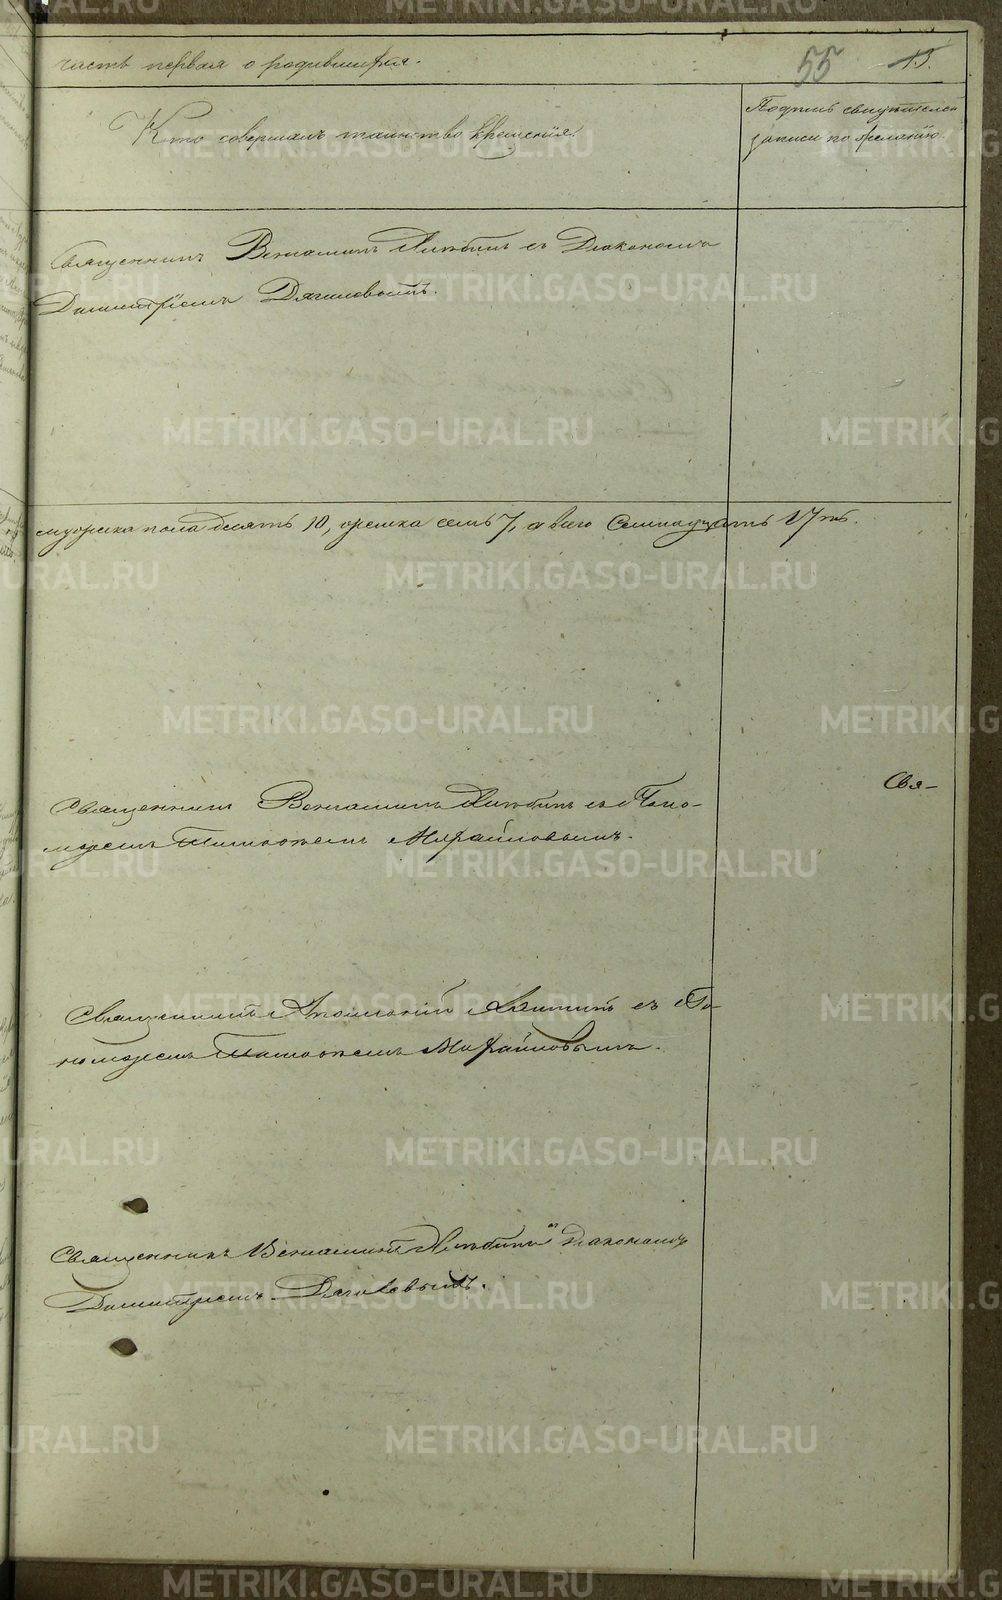 часть первая о родившихся.
55 15.
Кто совершалъ таинство крещенія.
Подпись свидѣтелей
записи по желанію.
Священникъ Веніаминъ с Діакономъ
Димитріемъ Дягилевымъ.
мужеска пола десять 10, женска семь 7, а всего семнадцать 17ть.
Свя-
Священникъ Веніаминъ съ Поно-
маремъ Тимоѳеемъ
Священникъ съ По-
номаремъ Тимоѳеемъ
Священникъ Веніаминъ Діакономъ
Димитріемъ Дягилевымъ.
METRIKI.GASO-URAL.RU